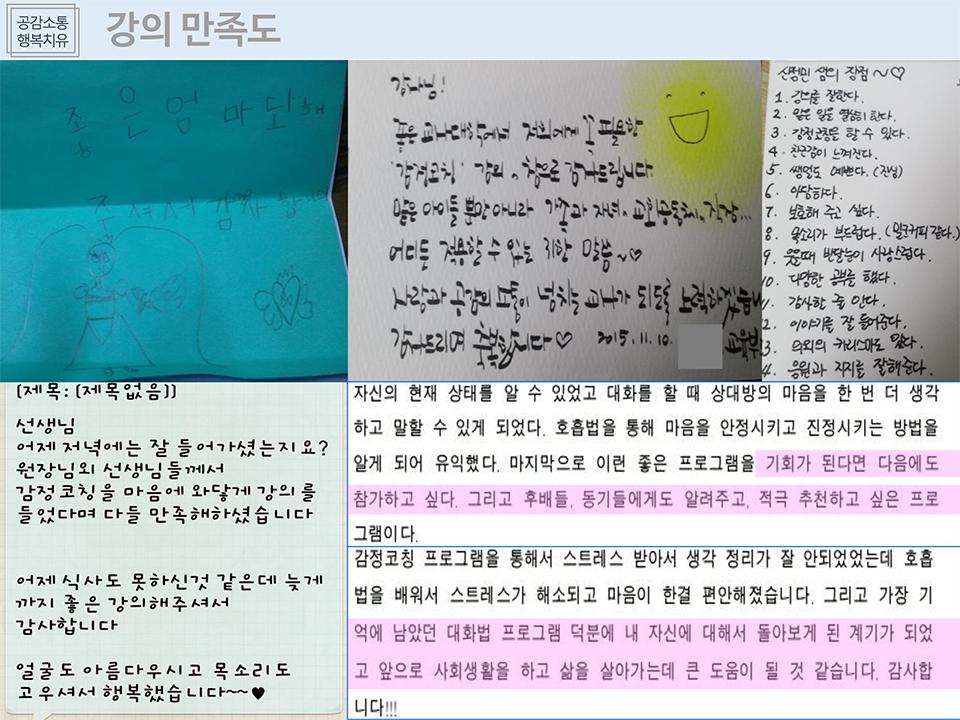 공감소통
행복치유
강의 만족도
조은 엄마 되게 해
주셔서 감사합니다
강사님!
좋은교사대학에서 저희에게 꼭 필요한
'감정코칭' 강의, 참으로 감사드립니다
많은 아이들 뿐만 아니라 가족과 자녀, 교회공동체, 직장...
어디든 적용할 수 있는 귀한 말씀~♡
사랑과 공감의 소통이 넘치는 교사가 되도록 노력하겠습니
감사드리며 축복합니다♡ 2015.11.10. 교육부
신정민 쌤의 장점~♡
1. 강의를 잘한다.
2. 맡은 일은 열심히 한다.
3. 감정코칭을 할 수 있다.
4. 친근감이 느껴진다.
5. 쌩얼도 예쁘다. (진심)
6. 아담하다.
7. 보호해 주고 싶다.
8. 목소리가 부드럽다. (밀크커피 같다.)
9. 웃을때 반달눈이 사랑스럽다.
10. 다양한 공부를 했다.
11. 감사할 줄 안다.
2. 이야기를 잘 들어준다.
3. 의외의 카리스마도 있다.
4. 응원과 지지를 잘해준다.
[제목: (제목없음)]
선생님
어제 저녁에는 잘 들어가셨는지요?
원장님외 선생님들께서
감정코칭을 마음에 와닿게 강의 를
들었다며 다들 만족해하셨습니다
어제 식사도 못하신것 같은데 늦게
까지 좋은 강의해주셔서
감사합니다
얼굴도 아름다우시고 목소리도
고우셔서 행복했습니다~~♥
자신의 현재 상태를 알 수 있었고 대화를 할 때 상대방의 마음을 한 번 더 생각
하고 말할 수 있게 되었다. 호흡법을 통해 마음을 안정시키고 진정시키는 방법을
알게 되어 유익했다. 마지막으로 이런 좋은 프로그램을 기회가 된다면 다음에도
참가하고 싶다. 그리고 후배들, 동기들에게도 알려주고, 적극 추천하고 싶은 프로
그램이다.
감정코칭 프로그램을 통해서 스트레스 받아서 생각 정리가 잘 안되었었는데 호흡
법을 배워서 스트레스가 해소되고 마음이 한결 편안해졌습니다. 그리고 가장 기
억에 남았던 대화법 프로그램 덕분에 내 자신에 대해서 돌아보게 된 계기가 되었
고 앞으로 사회생활을 하고 삶을 살아가는데 큰 도움이 될 것 같습니다. 감사합
니다!!!